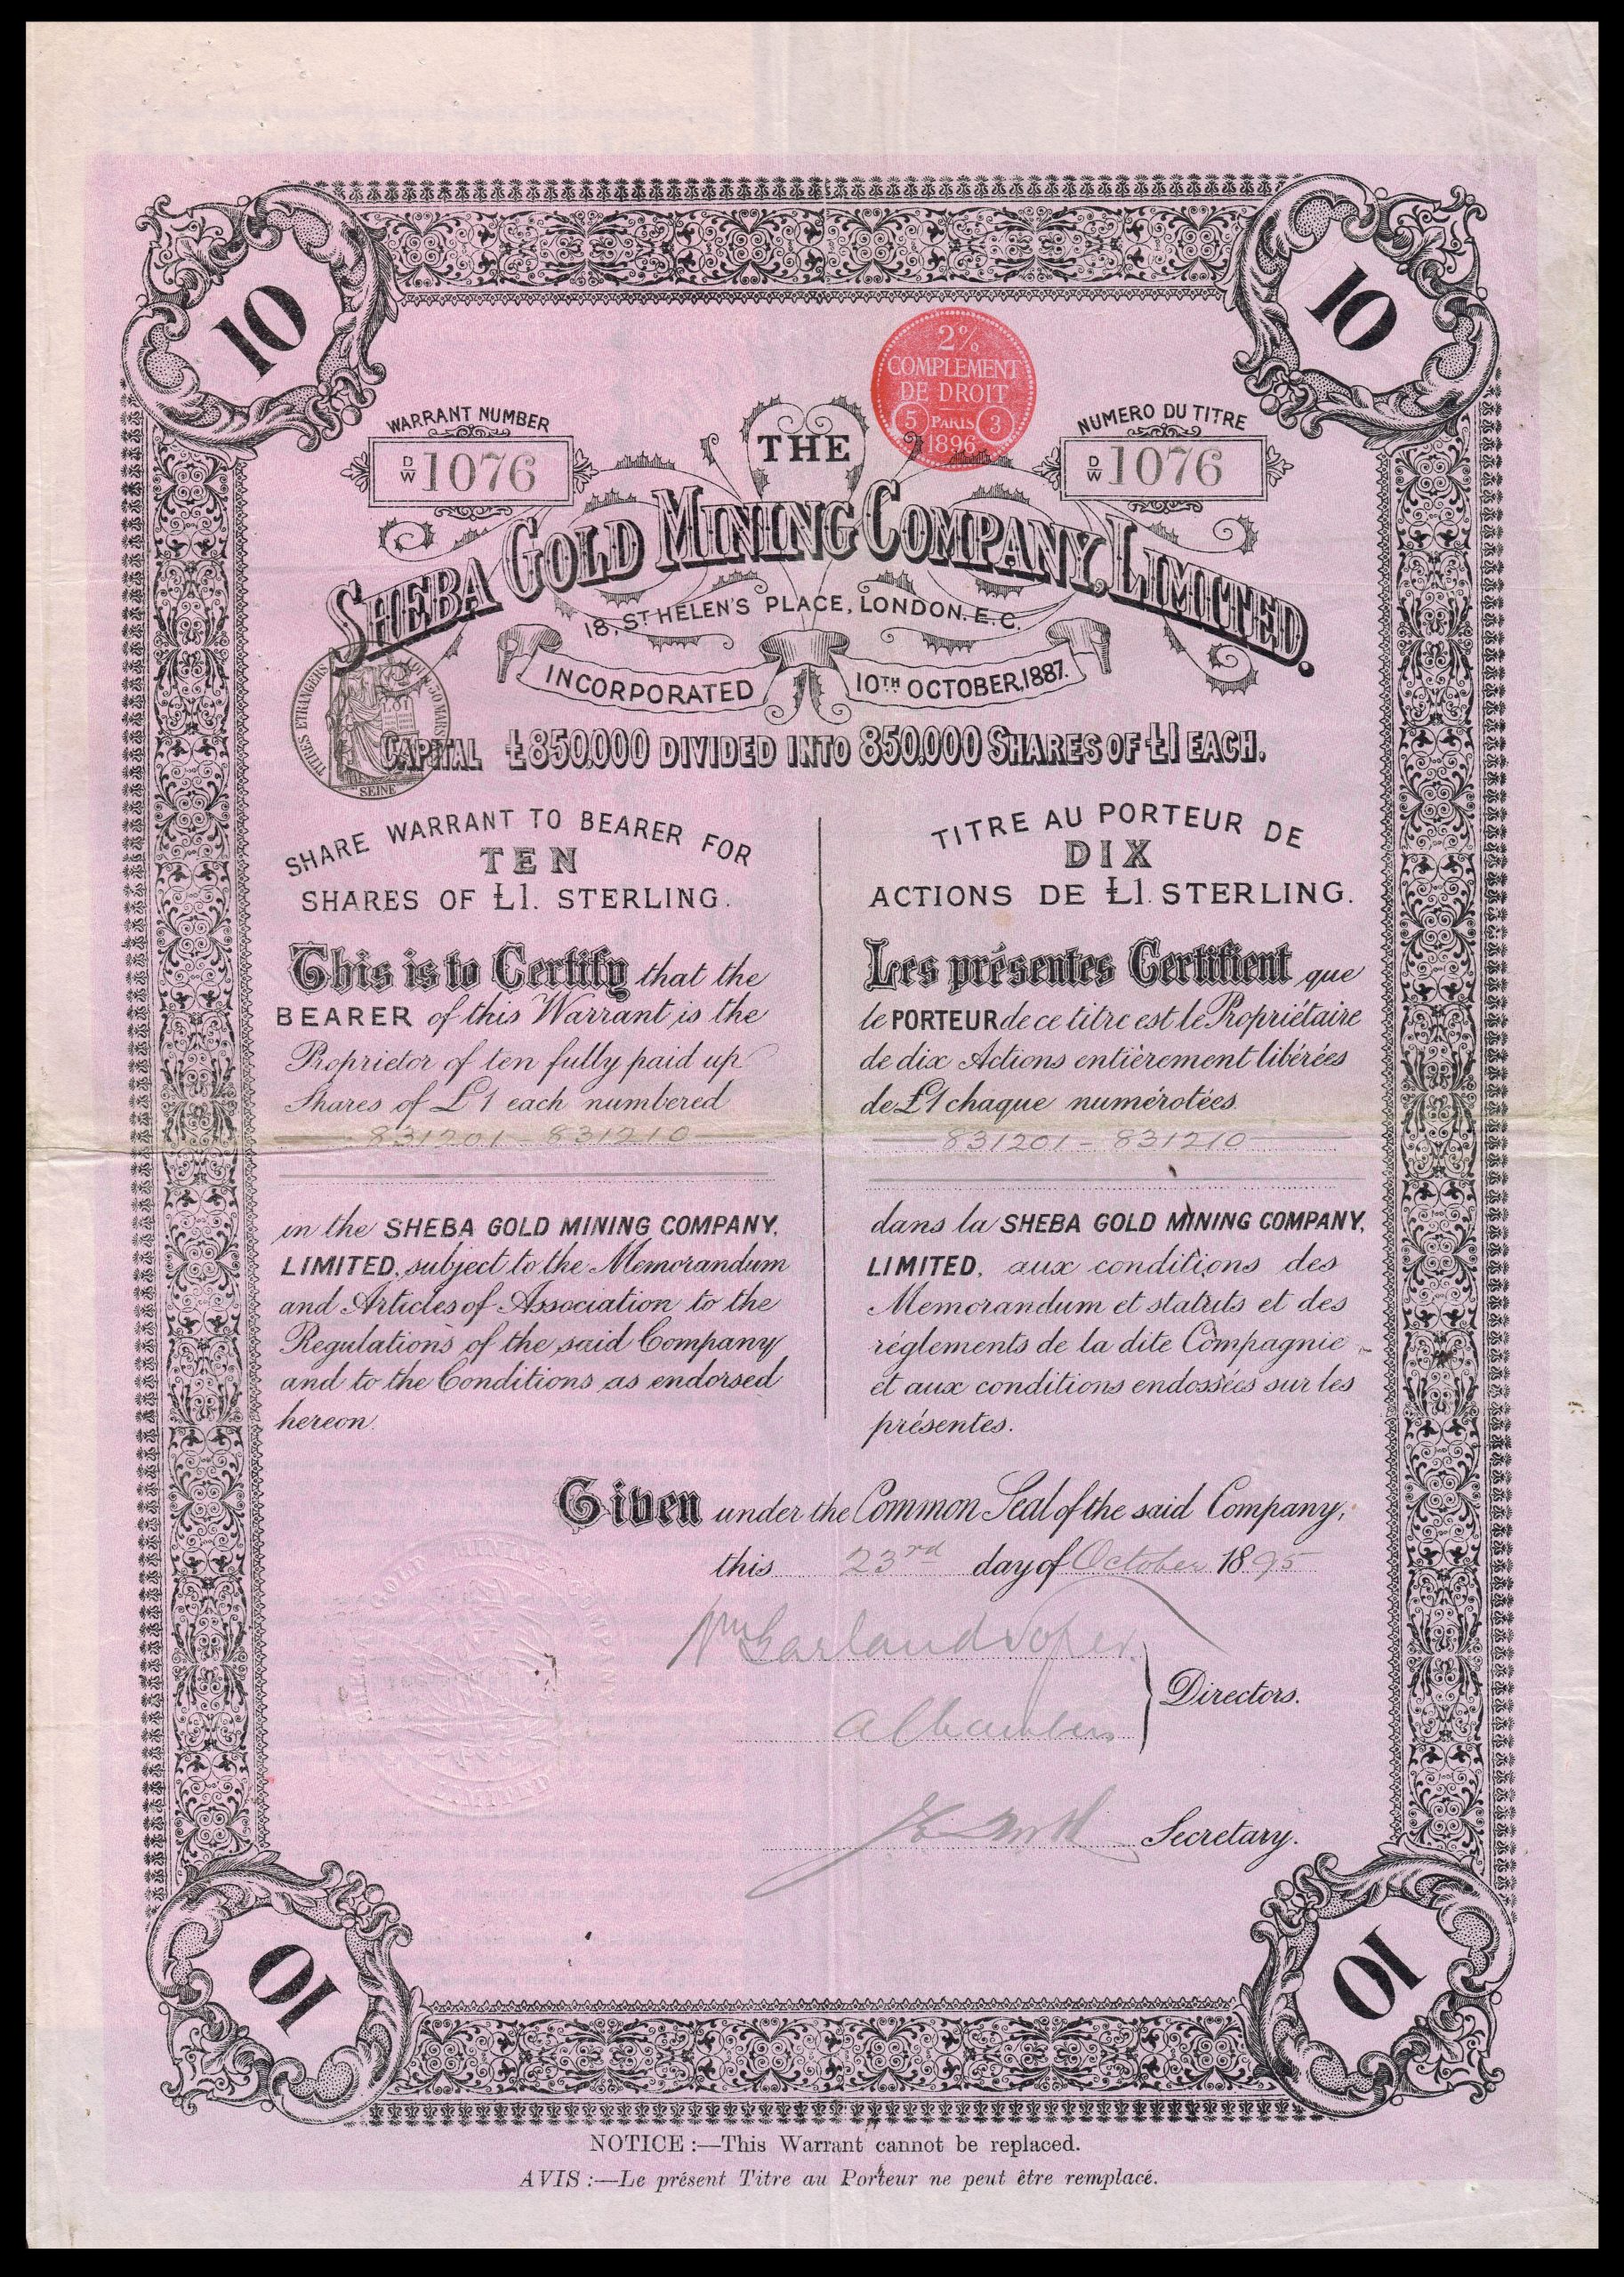 10
10
2%
COMPLEMENT
DE DROIT
5 PARIS 3
1896
WARRANT NUMBER
NUMERO DU TITRE
D/W 1076
D/W 1076
THE
SHEBA GOLD MINING COMPANY, LIMITED.
18, ST HELEN'S PLACE, LONDON. E.C.
INCORPORATED 10TH OCTOBER, 1887.
TITRES ETRANGERS
SEINE
CAPITAL £850,000 DIVIDED INTO 850,000 SHARES OF £1 EACH.
SHARE WARRANT TO BEARER FOR
TEN
SHARES OF £1. STERLING.
This is to Certify that the
BEARER of this Warrant is the
Proprietor of ten fully paid up
Shares of £1 each numbered
831201 - 831210
in the SHEBA GOLD MINING COMPANY,
LIMITED, subject to the Memorandum
and Articles of Association to the
Regulations of the said Company
and to the Conditions as endorsed
hereon.
TITRE AU PORTEUR DE
DIX
ACTIONS DE £1. STERLING.
Les présentes Certifient que
le PORTEUR de ce titre est le Propriétaire
de dix Actions entièrement libérées
de £1 chaque numérotées
831201 - 831210
dans la SHEBA GOLD MINING COMPANY,
LIMITED, aux conditions des
Memorandum et statuts et des
réglements de la dite Compagnie
et aux conditions endossées sur les
présentes.
Given under the Common Seal of the said Company,
this 23rd day of October 1895
Wm Garland Soper
Directors.
A Chambers
Secretary.
GOLD MINING
LIMITED
10
10
NOTICE :—This Warrant cannot be replaced.
AVIS :—Le présent Titre au Porteur ne peut être remplacé.